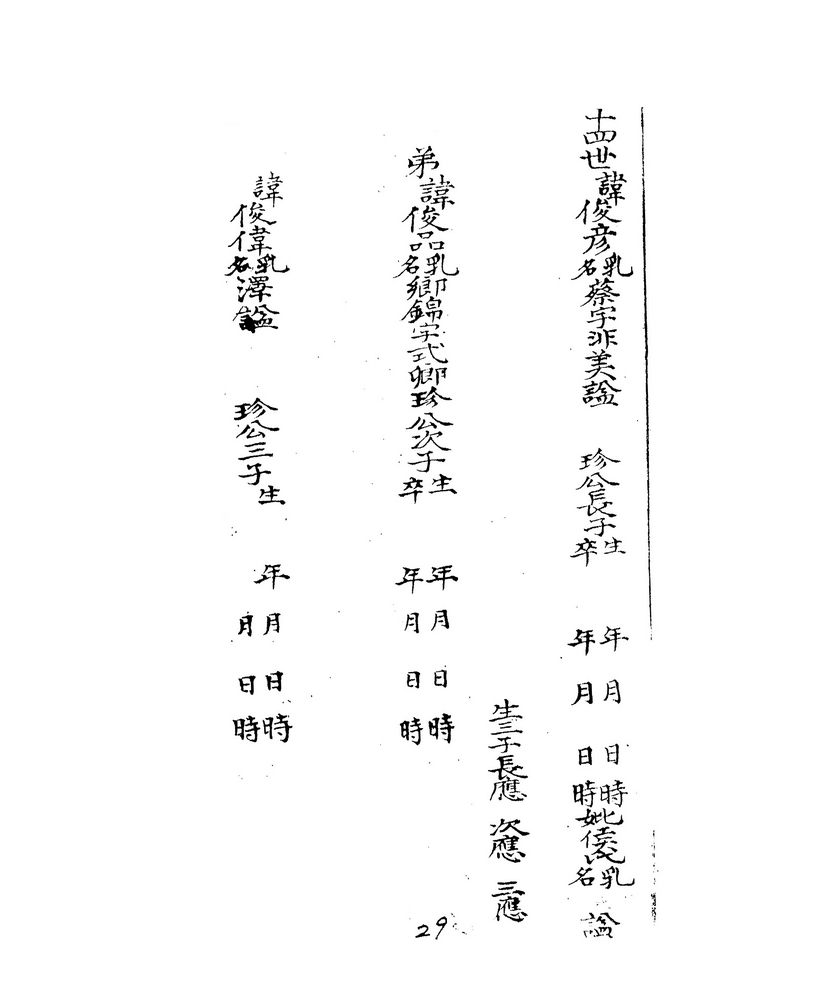 十四世諱俊彦乳名蔡字洲美諡 珍公長子生卒 年年 月月 日日 時時妣侯氏乳名 諡
生三子長應 次應 三應
弟諱俊品乳名鄉錦字式卿珍公次子生卒 年年 月月 日日 時時
諱俊偉乳名澤諡 珍公三子生 年 月月 日日 時時
29